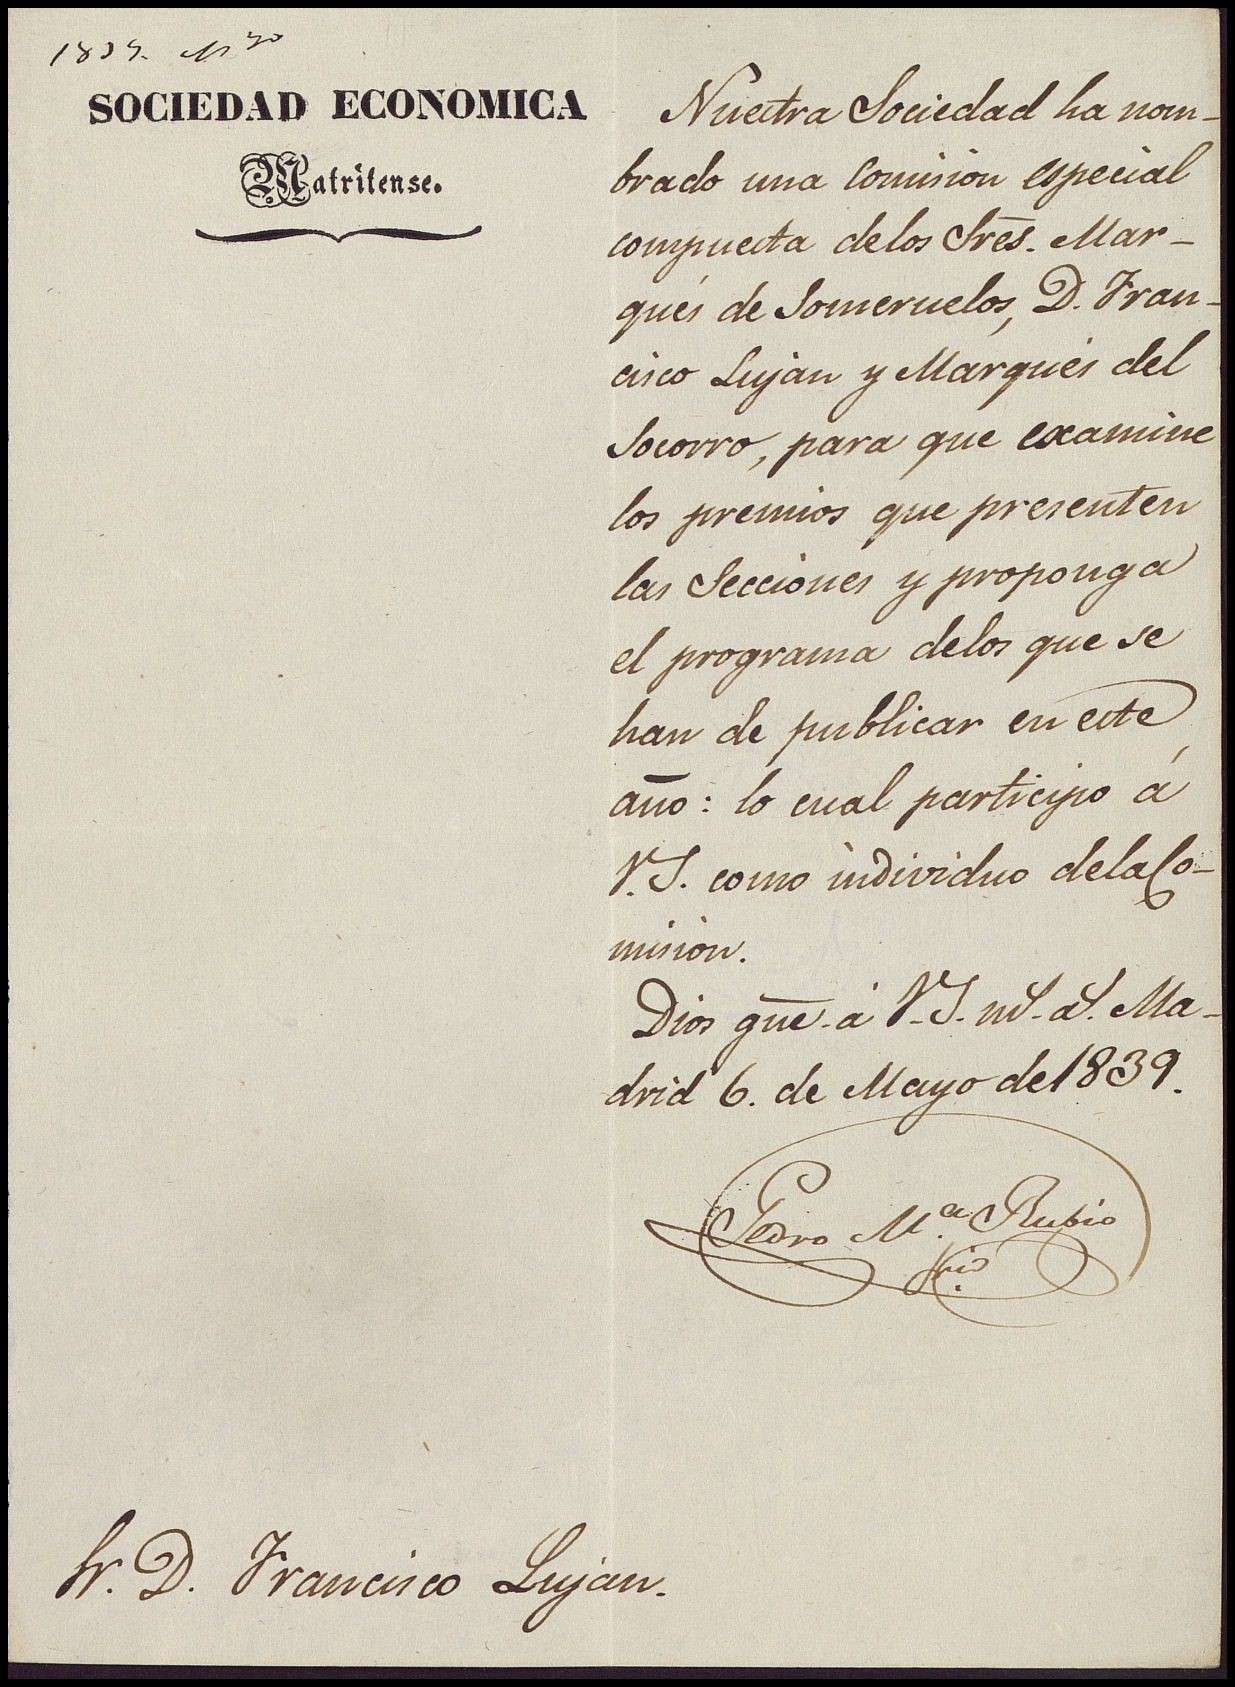 1839. Myo
SOCIEDAD ECONOMICA
Matritense.
Nuestra Sociedad ha nom-
brado una Comision especial
compuesta delos Sres. Mar-
qués de Someruelos, D. Fran-
cisco Lujan y Marqués del
Socorro, para que examine
los premios que presenten
las Secciones y proponga
el programa delos que se
han de publicar en este
año: lo cual participo á
V.S. como individuo dela Co-
mision.
Dios gue. á V.S. ms. as. Ma-
drid 6. de Mayo de 1839.
Pedro Ma. Rubio
Srio.
Sr. D. Francisco Lujan.